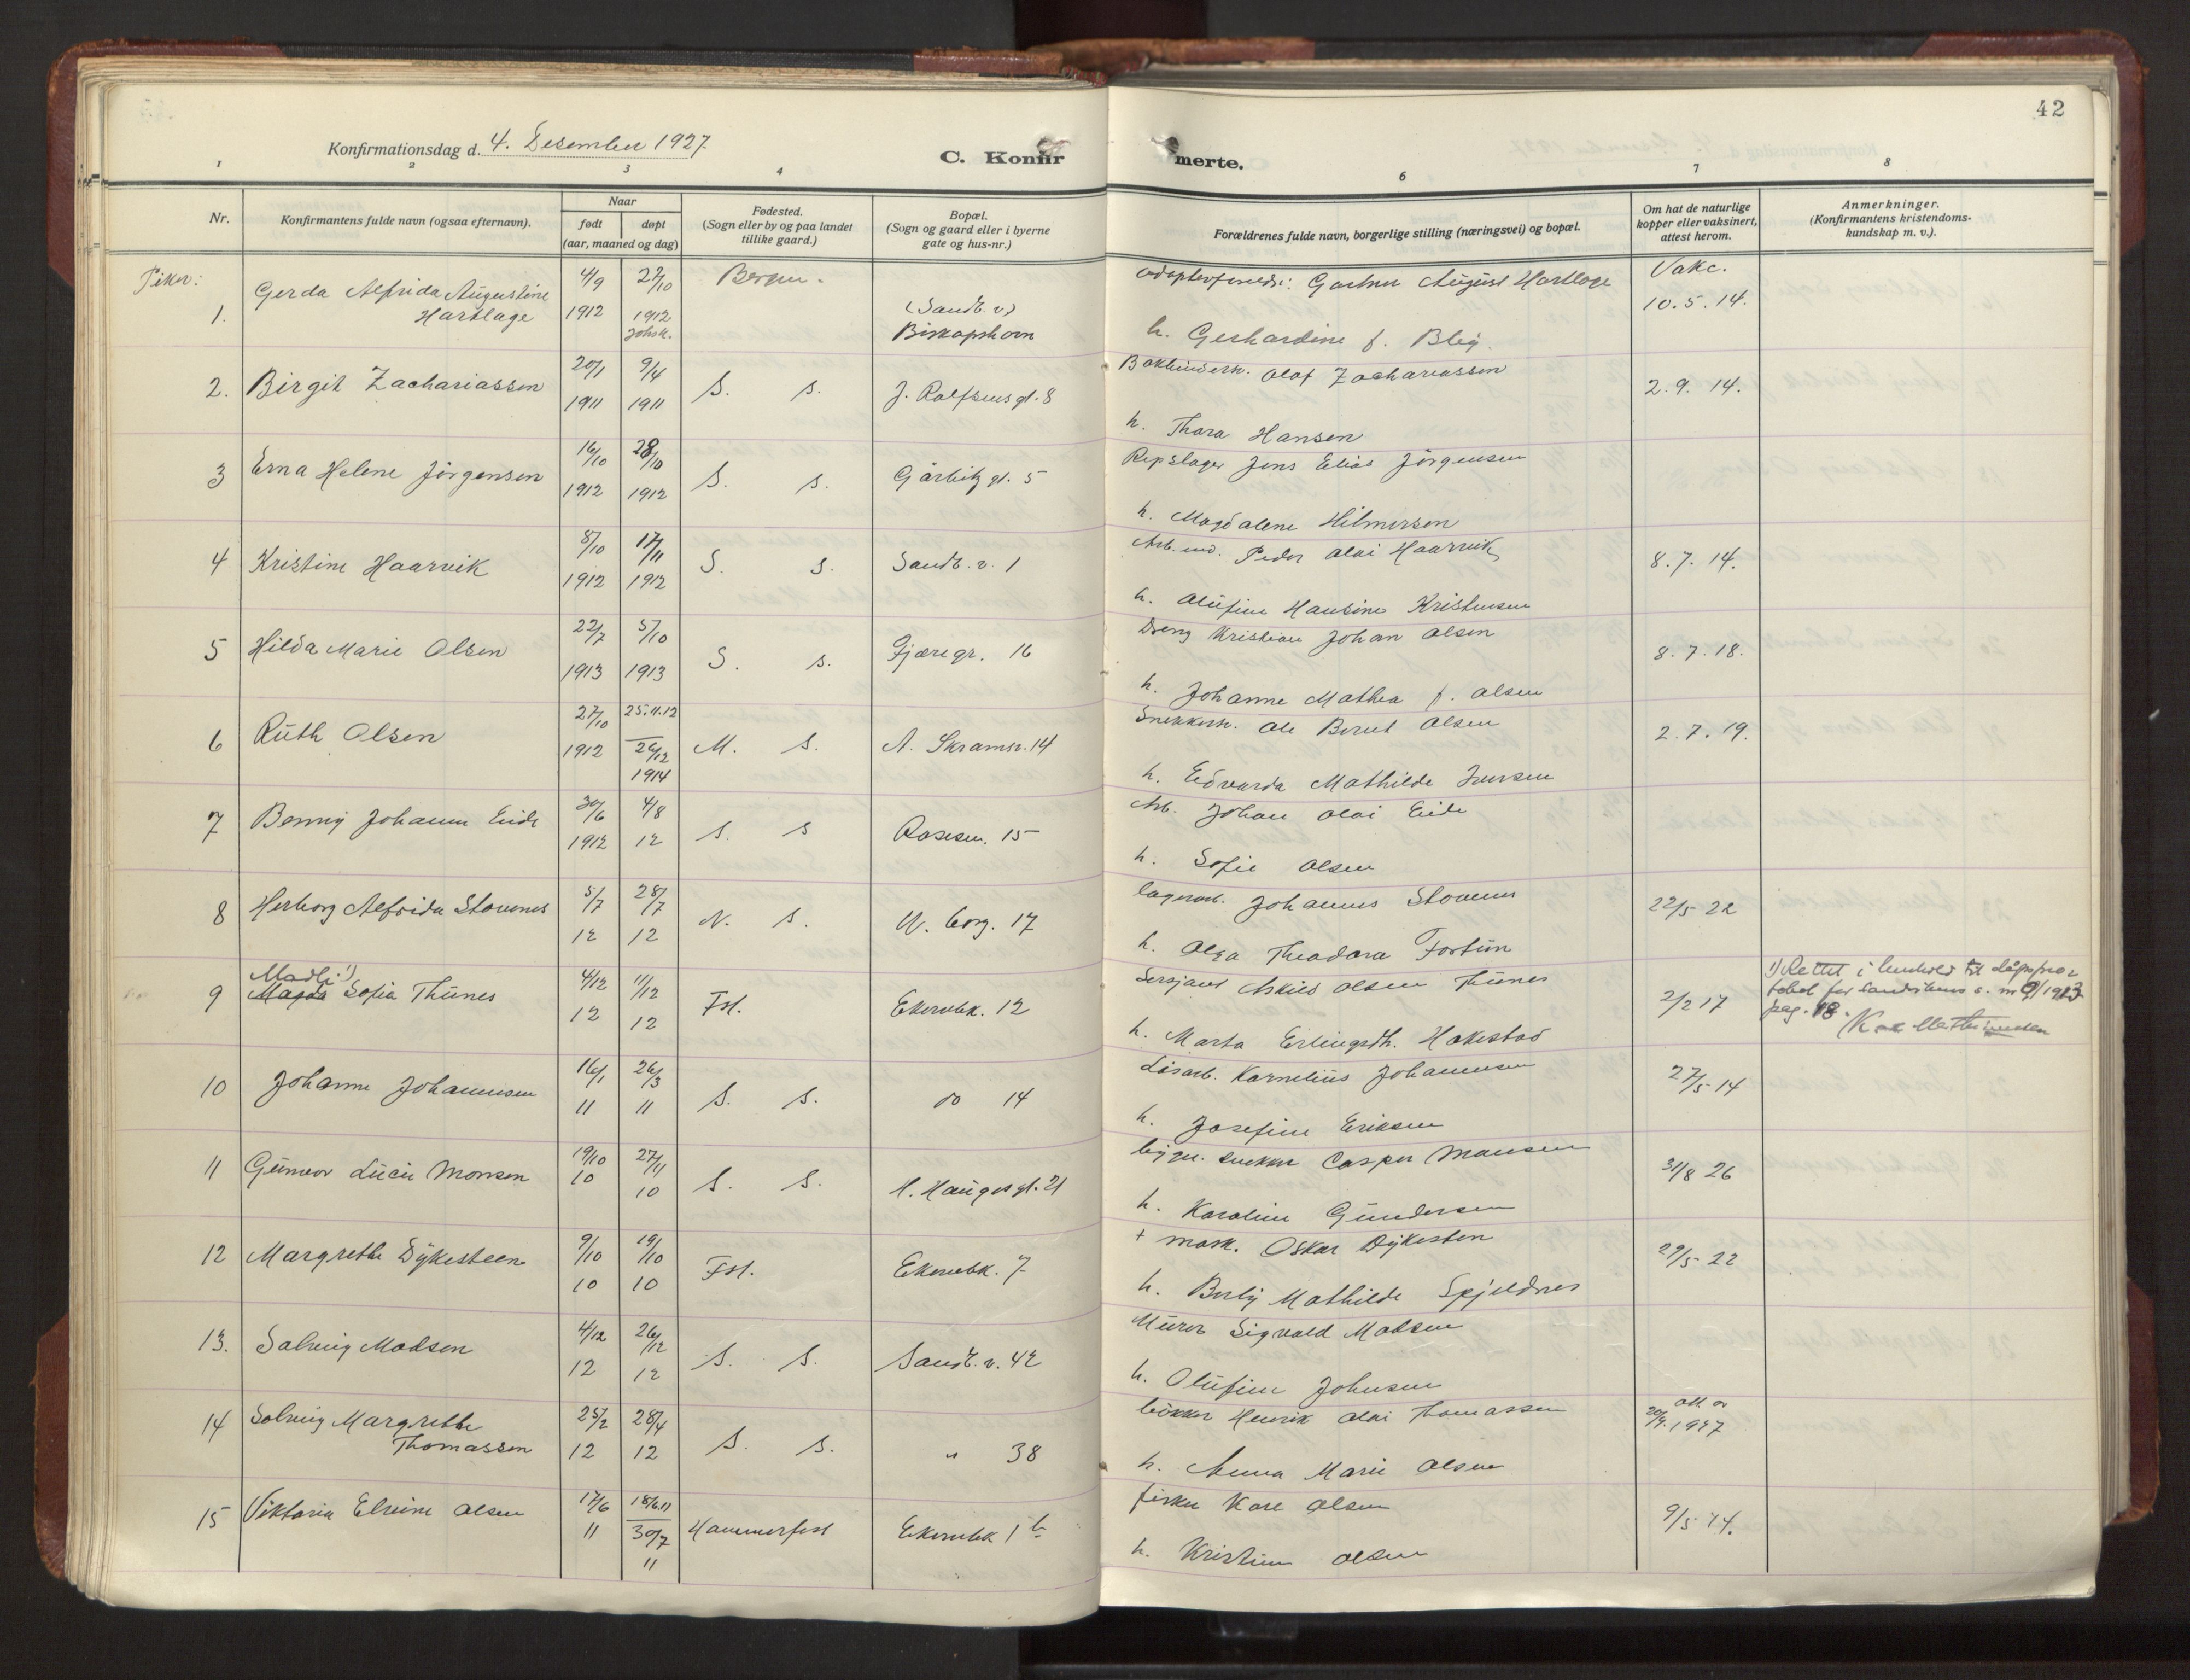 42
Konfirmationsdag d. 4. Desember 1927.
C. Konfir
merte.
1 2 3 4 6 7 8
Nr.
Konfirmantens fulde navn (ogsaa efternavn).
Naar
født
døpt
(aar, maaned og dag)
Fødested.
(Sogn eller by og paa landet
tillike gaard.)
Bopæl.
(Sogn og gaard eller i byerne
gate og hus-nr.)
Forældrenes fulde navn, borgerlige stilling (næringsvei) og bopæl.
Om hat de naturlige
kopper eller vaksinert,
attest herom.
Anmerkninger.
(Konfirmantens kristendoms-
kundskap m. v.).
Piker:
1. Gerda Alfrida Augustine
Hartlage
4/9 1912
27/10 1912
Johsk.
Bergen.
(Sandv. v)
Biskopshavn
Gartner August Hartlage
h. Gerhardine f. Bley.
Vakc.
10.5.14.
2. Birgit Zachariassen
20/1 1911
9/4 1911
S. s.
J. Rolfsens gt. 8
Bokbinderh. Olaf Zachariassen
h. Thora Hansen
2.9.14.
3 Erna Helene Jörgensen
16/10 1912
28/10 1912
S. s.
gt. 5
Repslager Jens Elias Jörgensen
h. Magdalene Hilmersen
4 Kristine Haarvik
8/10 1912
17/11 1912
S. s.
Sandv. v. 1
Peder Olai Haarvik
h. Olufine Hansine Kristensen
8.7.14.
5 Hilda Marie Olsen
22/7 1913
5/10 1913
S. s.
Fjæregr. 16
Dreng Kristian Johan Olsen
h. Johanne Mathea f. Olsen
8.7.18.
6 Ruth Olsen
27/10 1912
25.11.12
26/12 1914
M. s.
A. Skramsv. 14
Snekkerh. Ole Bernt Olsen
h. Edvarda Mathilde Iversen
2.7.19.
7 Benny Johanne Eide
30/6 1912
4/8 12
S. s
Rosesm. 15
Arb. Johan Olai Eide
h. Sofie Olsen
8 Herborg Alfrida Stavenes
5/7 12
28/7 12
N. s.
17
lagerarb. Johannes Stavenes
h. Olga Theodora Fortun
22/5 22
9 Madli 1)
Magda Sofia Thunes
4/12 12
11/12 12
Fst.
Ekrebk. 12
Sersjant Askild Olsen Thunes
h. Marta Erlingsdtr. Hakestad
2/2 17
1) Rettet i henhold til dåpspro=
tokol for Sandvikens s. nr 9/1913
pag. 18.
10 Johanne Johannesen
16/1 11
26/3 11
S. s.
do 14
Kornelius Johannesen
h. Josefine Eriksen
27/5 14
11 Gunvor Lucie Monsen
19/10 10
27/11 10
S. S.
H. Hauges gt. 21
Casper Monsen
h. Karoline Gundersen
31/8 26
12 Margrethe Dykesteen
9/10 10
19/10 10
Fst.
Ekrebk. 7
+ mask. Oskar Dykesten
h. Berly Mathilde Spjeldnes
29/5 22
13. Solveig Madsen
4/12 12
26/12 12
S. S.
Sandv. v. 42
Murer Sigvald Madsen
h. Olufine Johnsen
14 Solveig Margrethe
Thomassen
25/2 12
28/4 12
S. s.
" 38
bökker Henrik Olai Thomassen
h. Anna Marie Olsen
att av
20/9.1927
15 Viktoria Elvine Olsen
17/6 11
18/6 11
30/7 11
Hammerfest
Ekrebk 1 b
fisker Kare Olsen
h. Kristine Olsen
9/5 14.